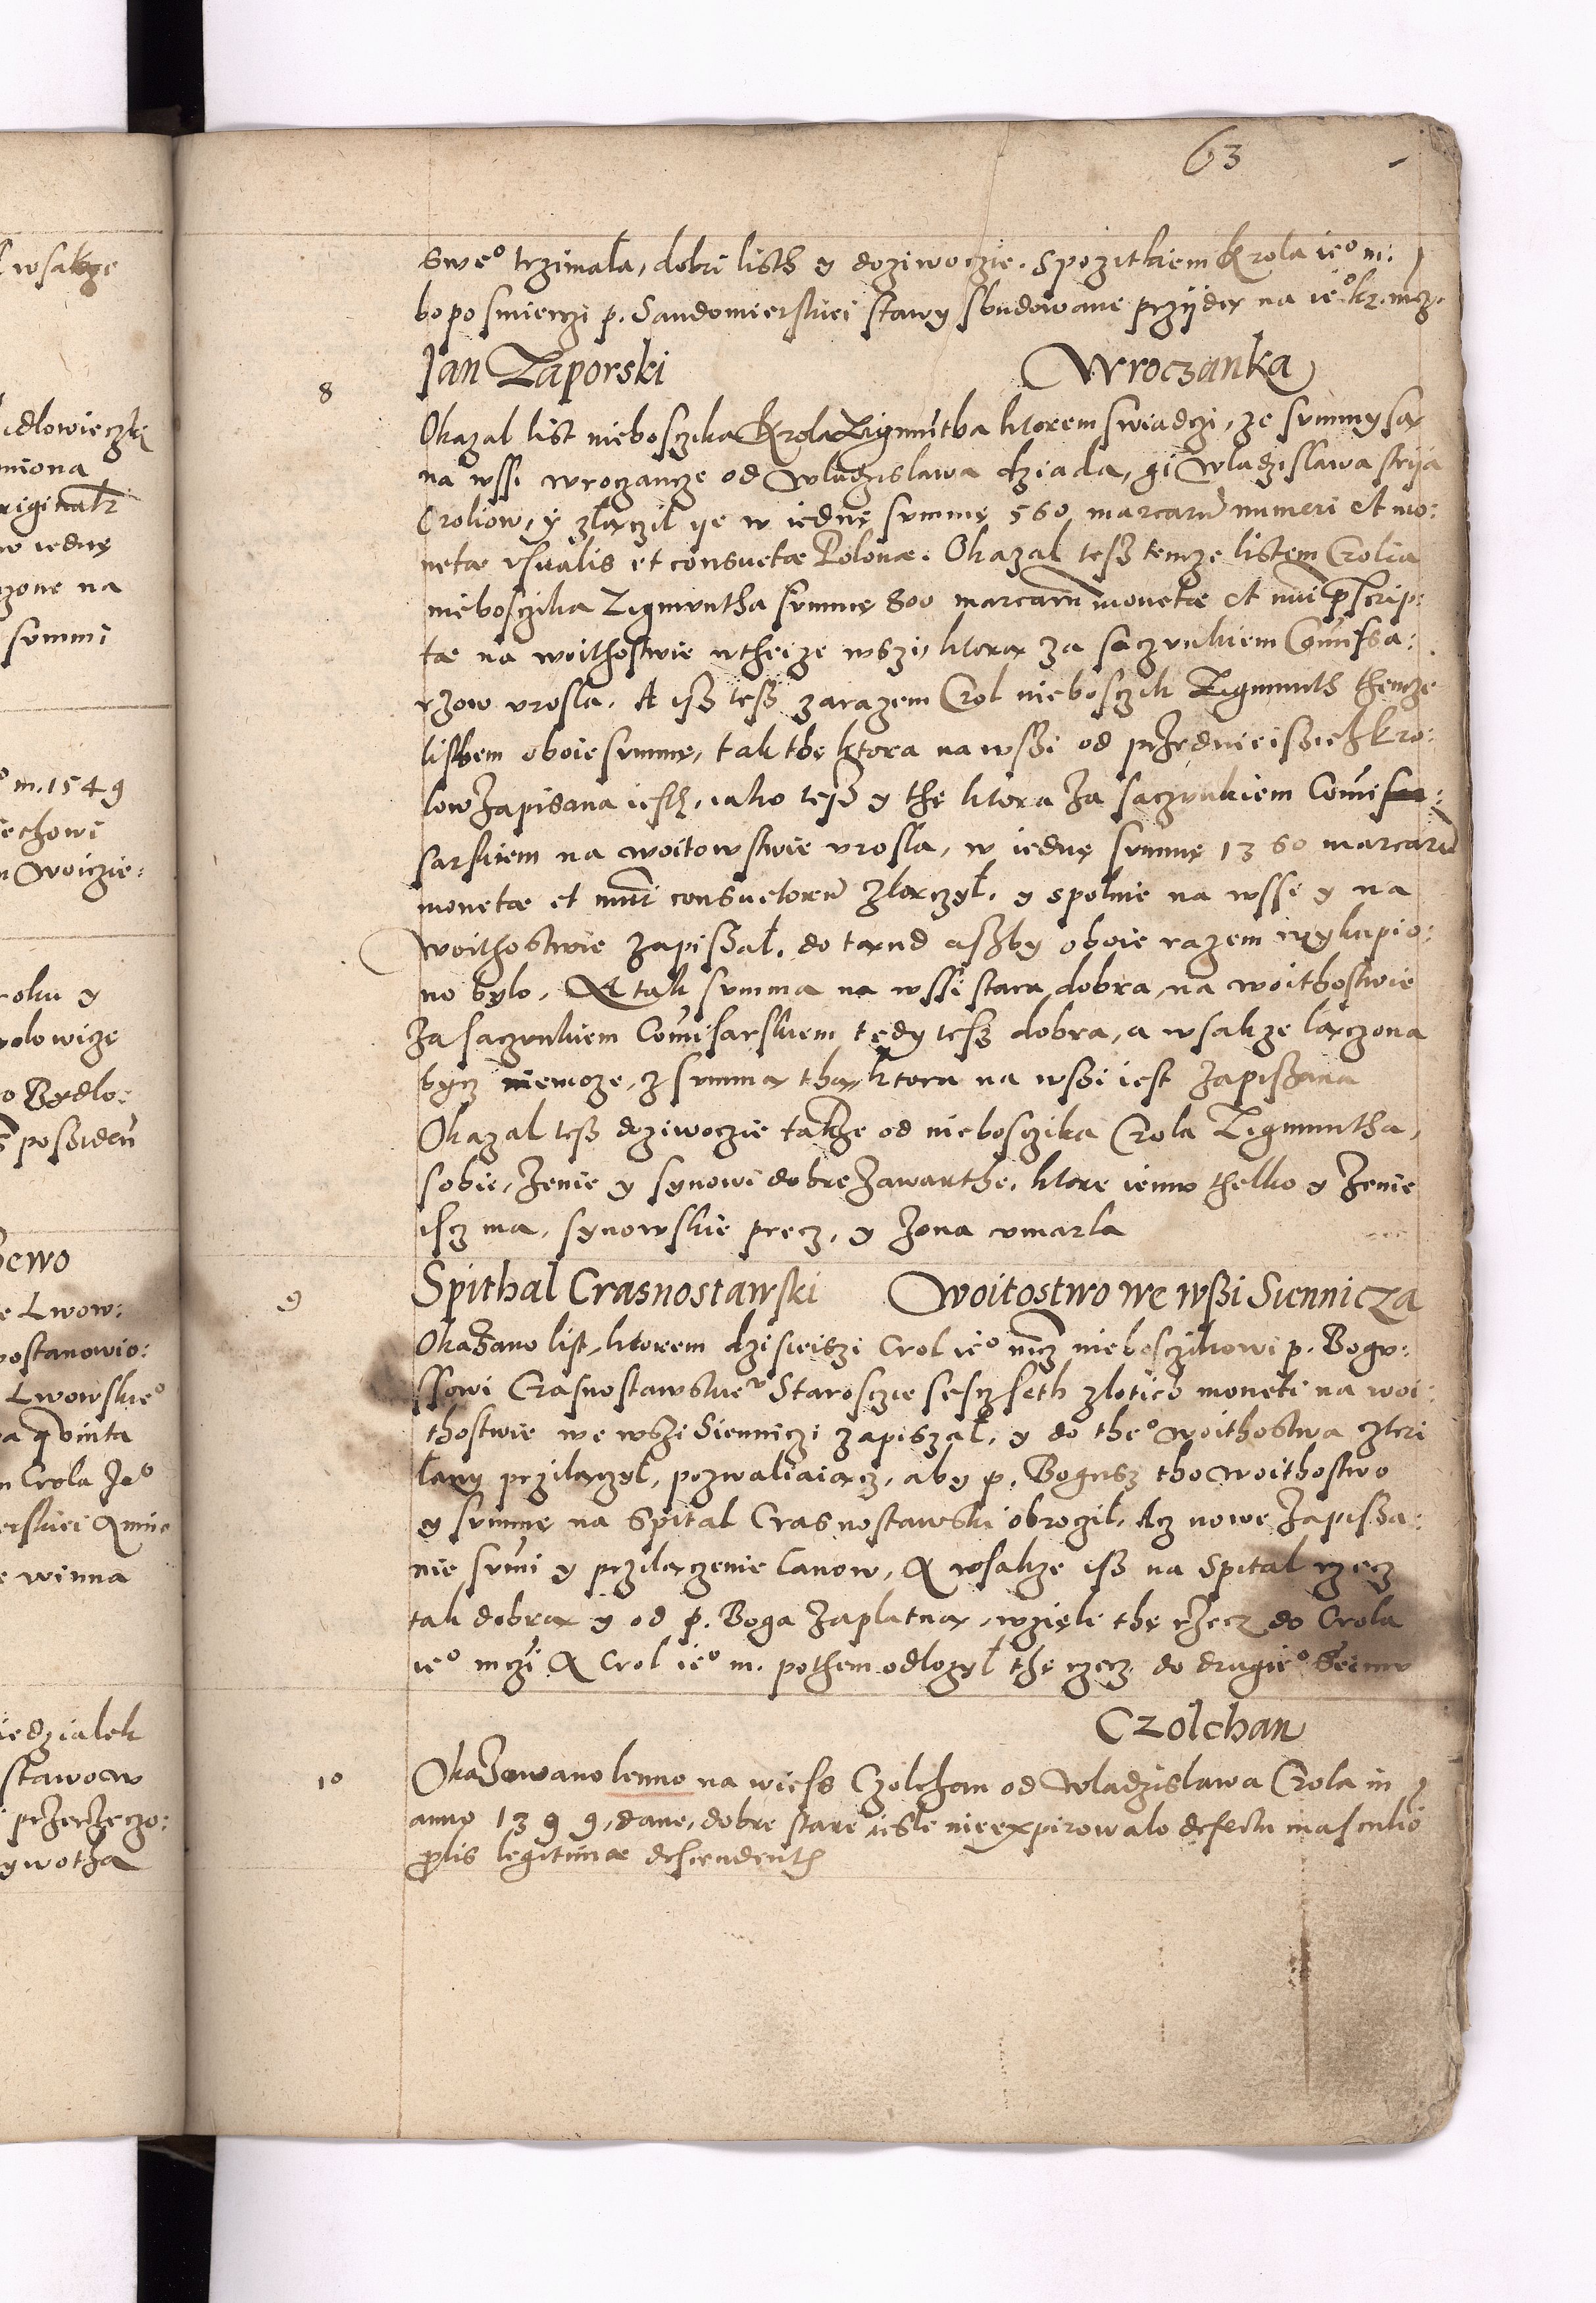 63
sweo trzimala, dobri listh y doziwoczie. Spozitkiem Krola ieo m:
bo po smierczi p. Sandomierskiei stawy sbudowane przijdą na ieo kr. mcz.
8 Jan Zaporski Wroczanka
Okazal list nieboscika Krola Zigmuntha ktorem swiadczi, ze summy są
na wssi wroczance od Wladzislawa dziada, gi Wladzislawa strija
Croliow, y zlączil ye w iednę summę 560 marcarū numeri et mo:
netæ usualis et consuetæ Polonæ. Okazal tesz temze listem Crolia
nieboscika Zigmuntha summę 800 marcarū monetæ et nūi p̄scrip:
tæ na woithostwie wtheize wszi, ktorą za saczunkiem Comissa:
rzow urosla. A isz tesz zarazem Crol nieboscik Zigmunth themze
listhem oboie summę, tak thę ktora na wszi od przednieiszich kro:
low zapisana iesth, iako tesz y thę ktora za saczunkiem Comis
sarskiem na woitowstwie urosla, w iednę summę 1360 marcarū
monetæ et nūri consuetorū zlączyl, y spolnie na wssi y na
woithostwie zapiszal, do tąnd aszby oboie razem wykupio:
no bylo, A tak summa na wssi stara dobra, na woithostwie
za saczunkiem Comisarskiem tedy tesz dobra, a wsakze lączona
bycz niemoze, z summą thą ktora na wszi iest zapiszana
Okazal tesz doziwoczie takze od nieboscika Crola Zigmuntha,
sobie, zenie y synowi dobre zawarthe, ktore iemu thelko y zenie
iscz ma, synowskie precz, y zona umarla
9 Spithal Crasnostawski Woitostwo we wszi Siennicza
Okazano list, ktorem dzisieiszi Crol ieo mcz nieboscikowi p. Bogu:
ssowi Crasnostawskieo Staroscie sescz seth zlotich moneti na woi:
thostwie we wszi Sienniczi zapiszal, y do theo woithostwa cztri
lany prziłączyl, pozwaliaiącz, aby p. Bogusz tho woithostwo
y summę na Spital Crasnostawski obroczil, Acz nowe zapisza:
nie sumi y przilączenie lanow, A wsakze isz na Spital rzecz
tak dobrą y od p. Boga zaplatną, wzięli thę rzecz do Crola
ieo mczi A Crol ieo m. pothem odlozyl thę rzecz do drugieo Seimu
Czolchan
10 Okazowano lenno na wiess Czolchan od Wladzislawa Crola in
anno 1399, dane, dobre stare iesli nie expirowalo defectu masculio
ꝓlis legitimæ descendenth